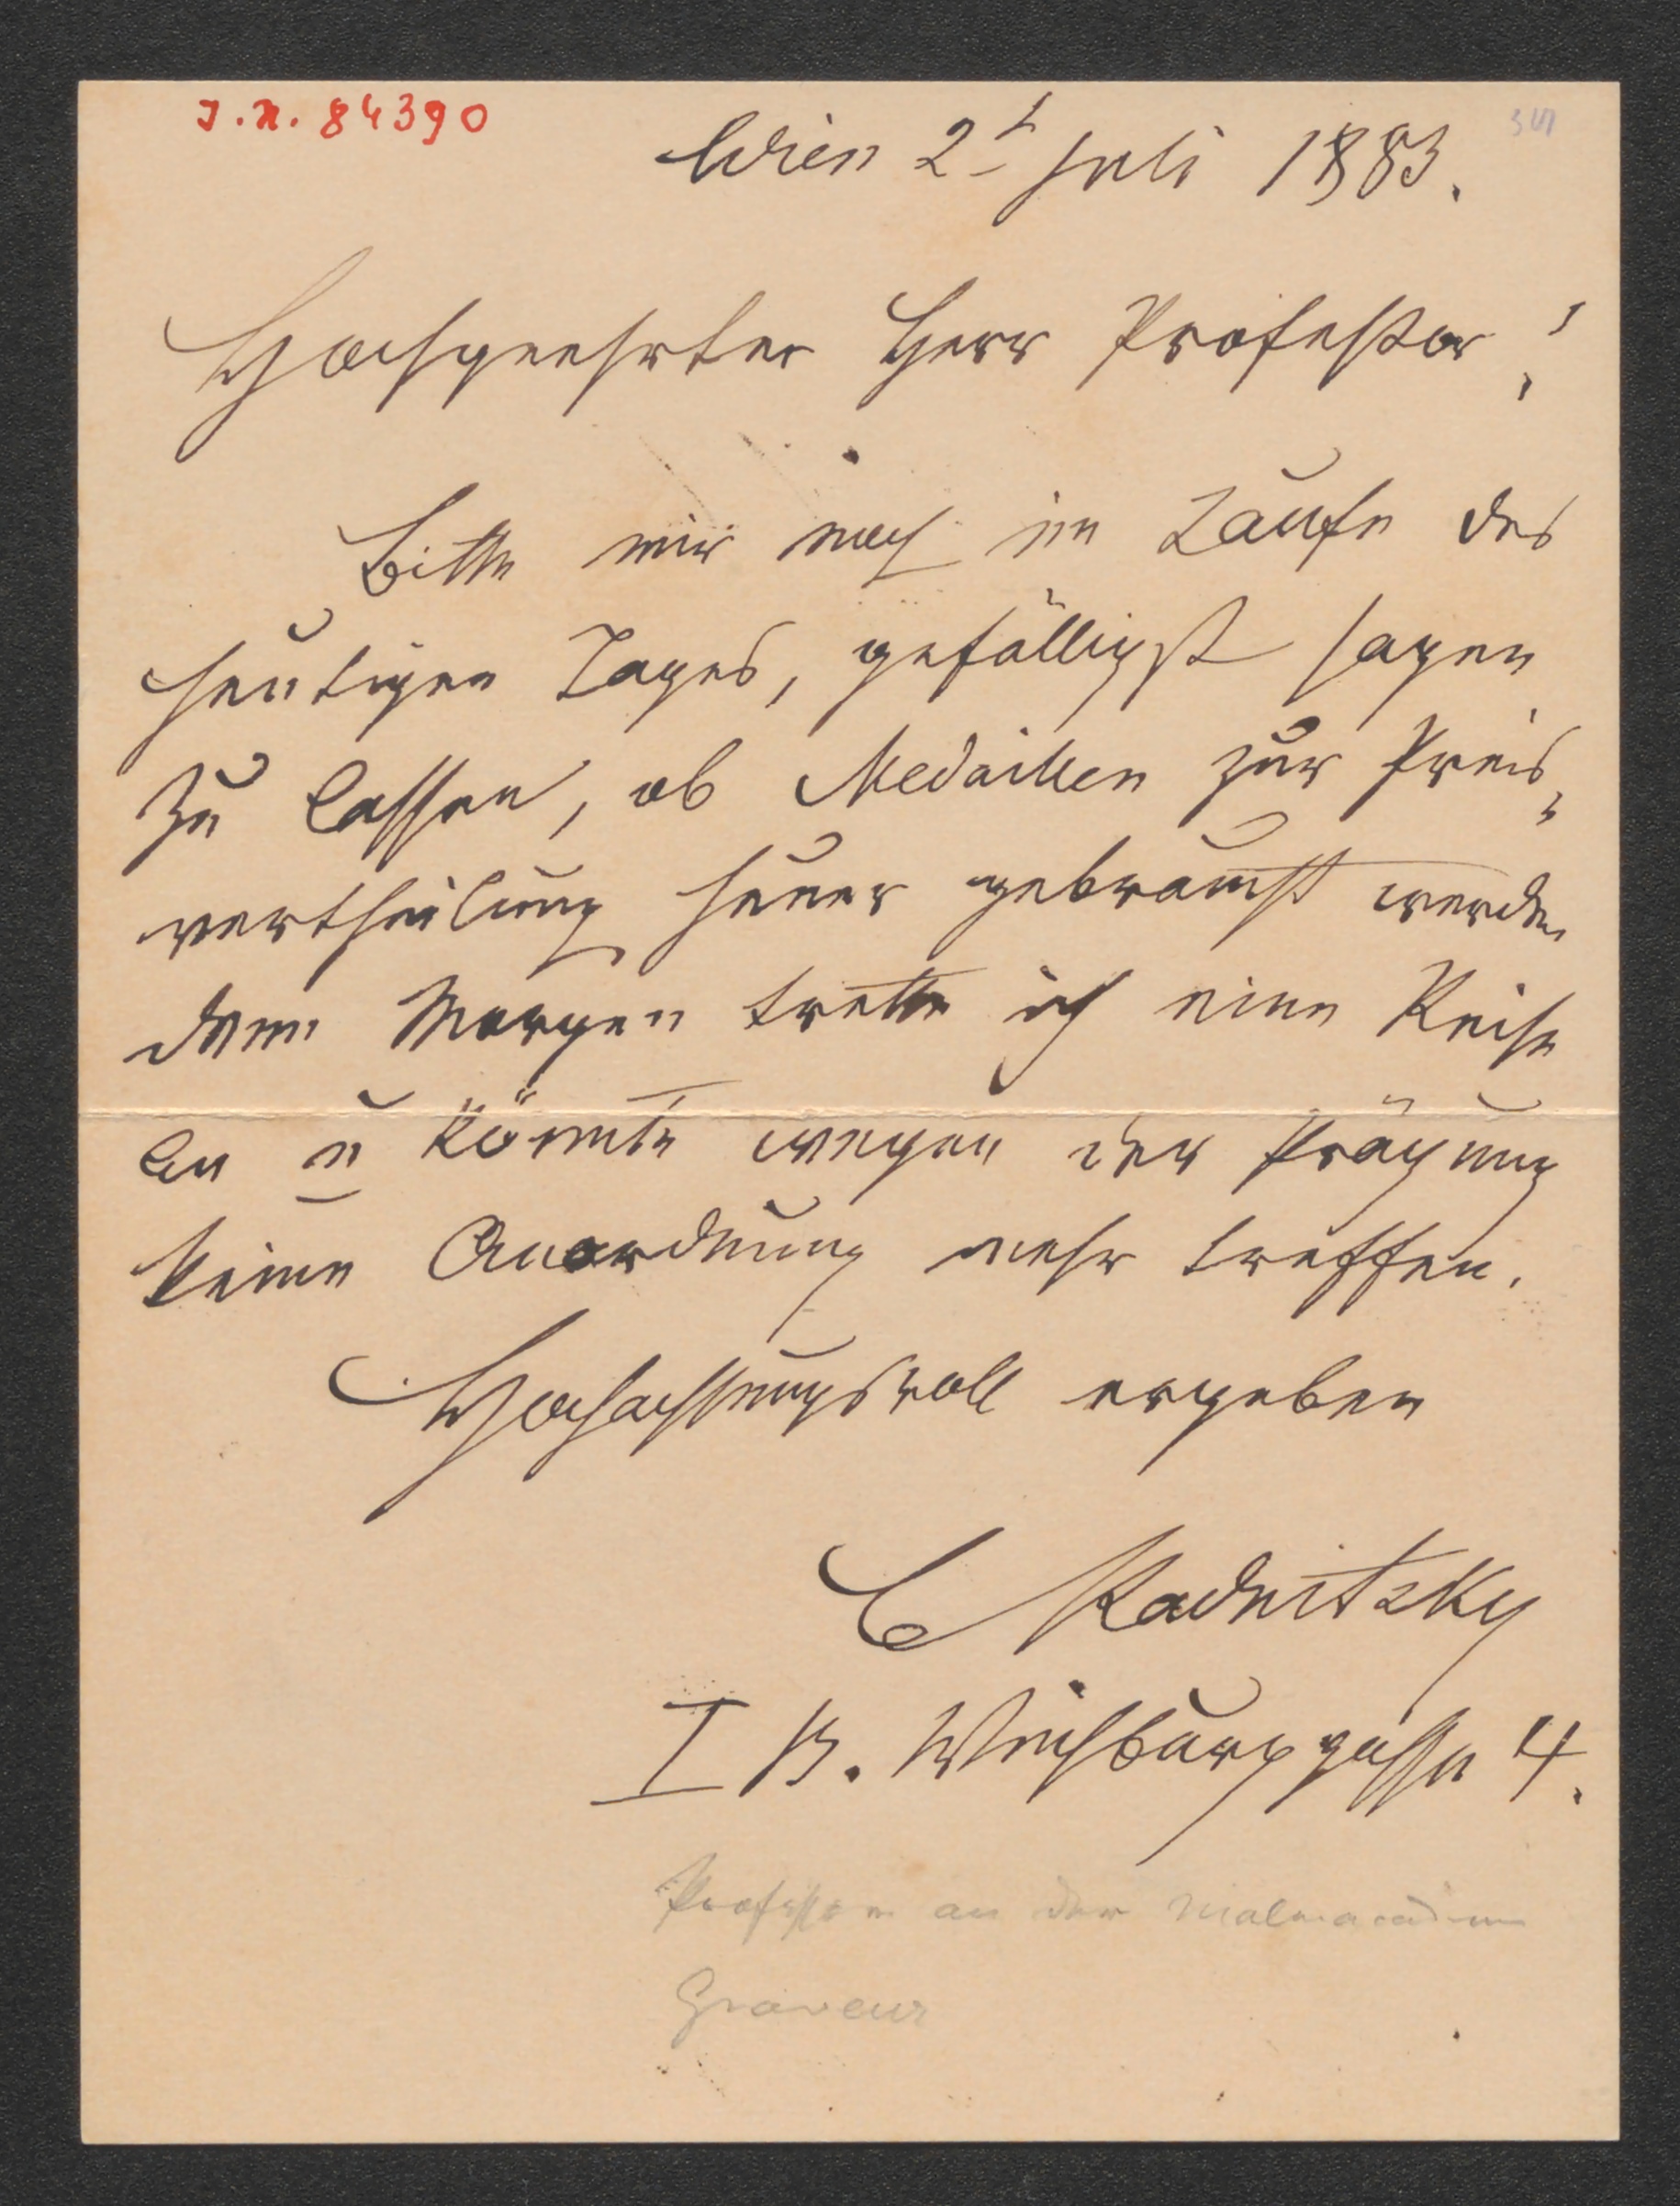 J.N. 84390
Wien 2t Juli 1883.
Hochgeehrter Herr Professor!
Bitte mir noch im Laufe des
heutigen Tages, gefälligst sagen
zu lassen, ob Medaillen zur Preis„
vertheilung heuer gebraucht werden
denn Morgen trette ich eine Reise
an u könnte wegen der Prägung
keine Anordnung mehr treffen.
Hochachtungsvoll ergeben
C Radnitzky
I B. Weihburggasse 4.
Professor an der Maleracademie
Graveur